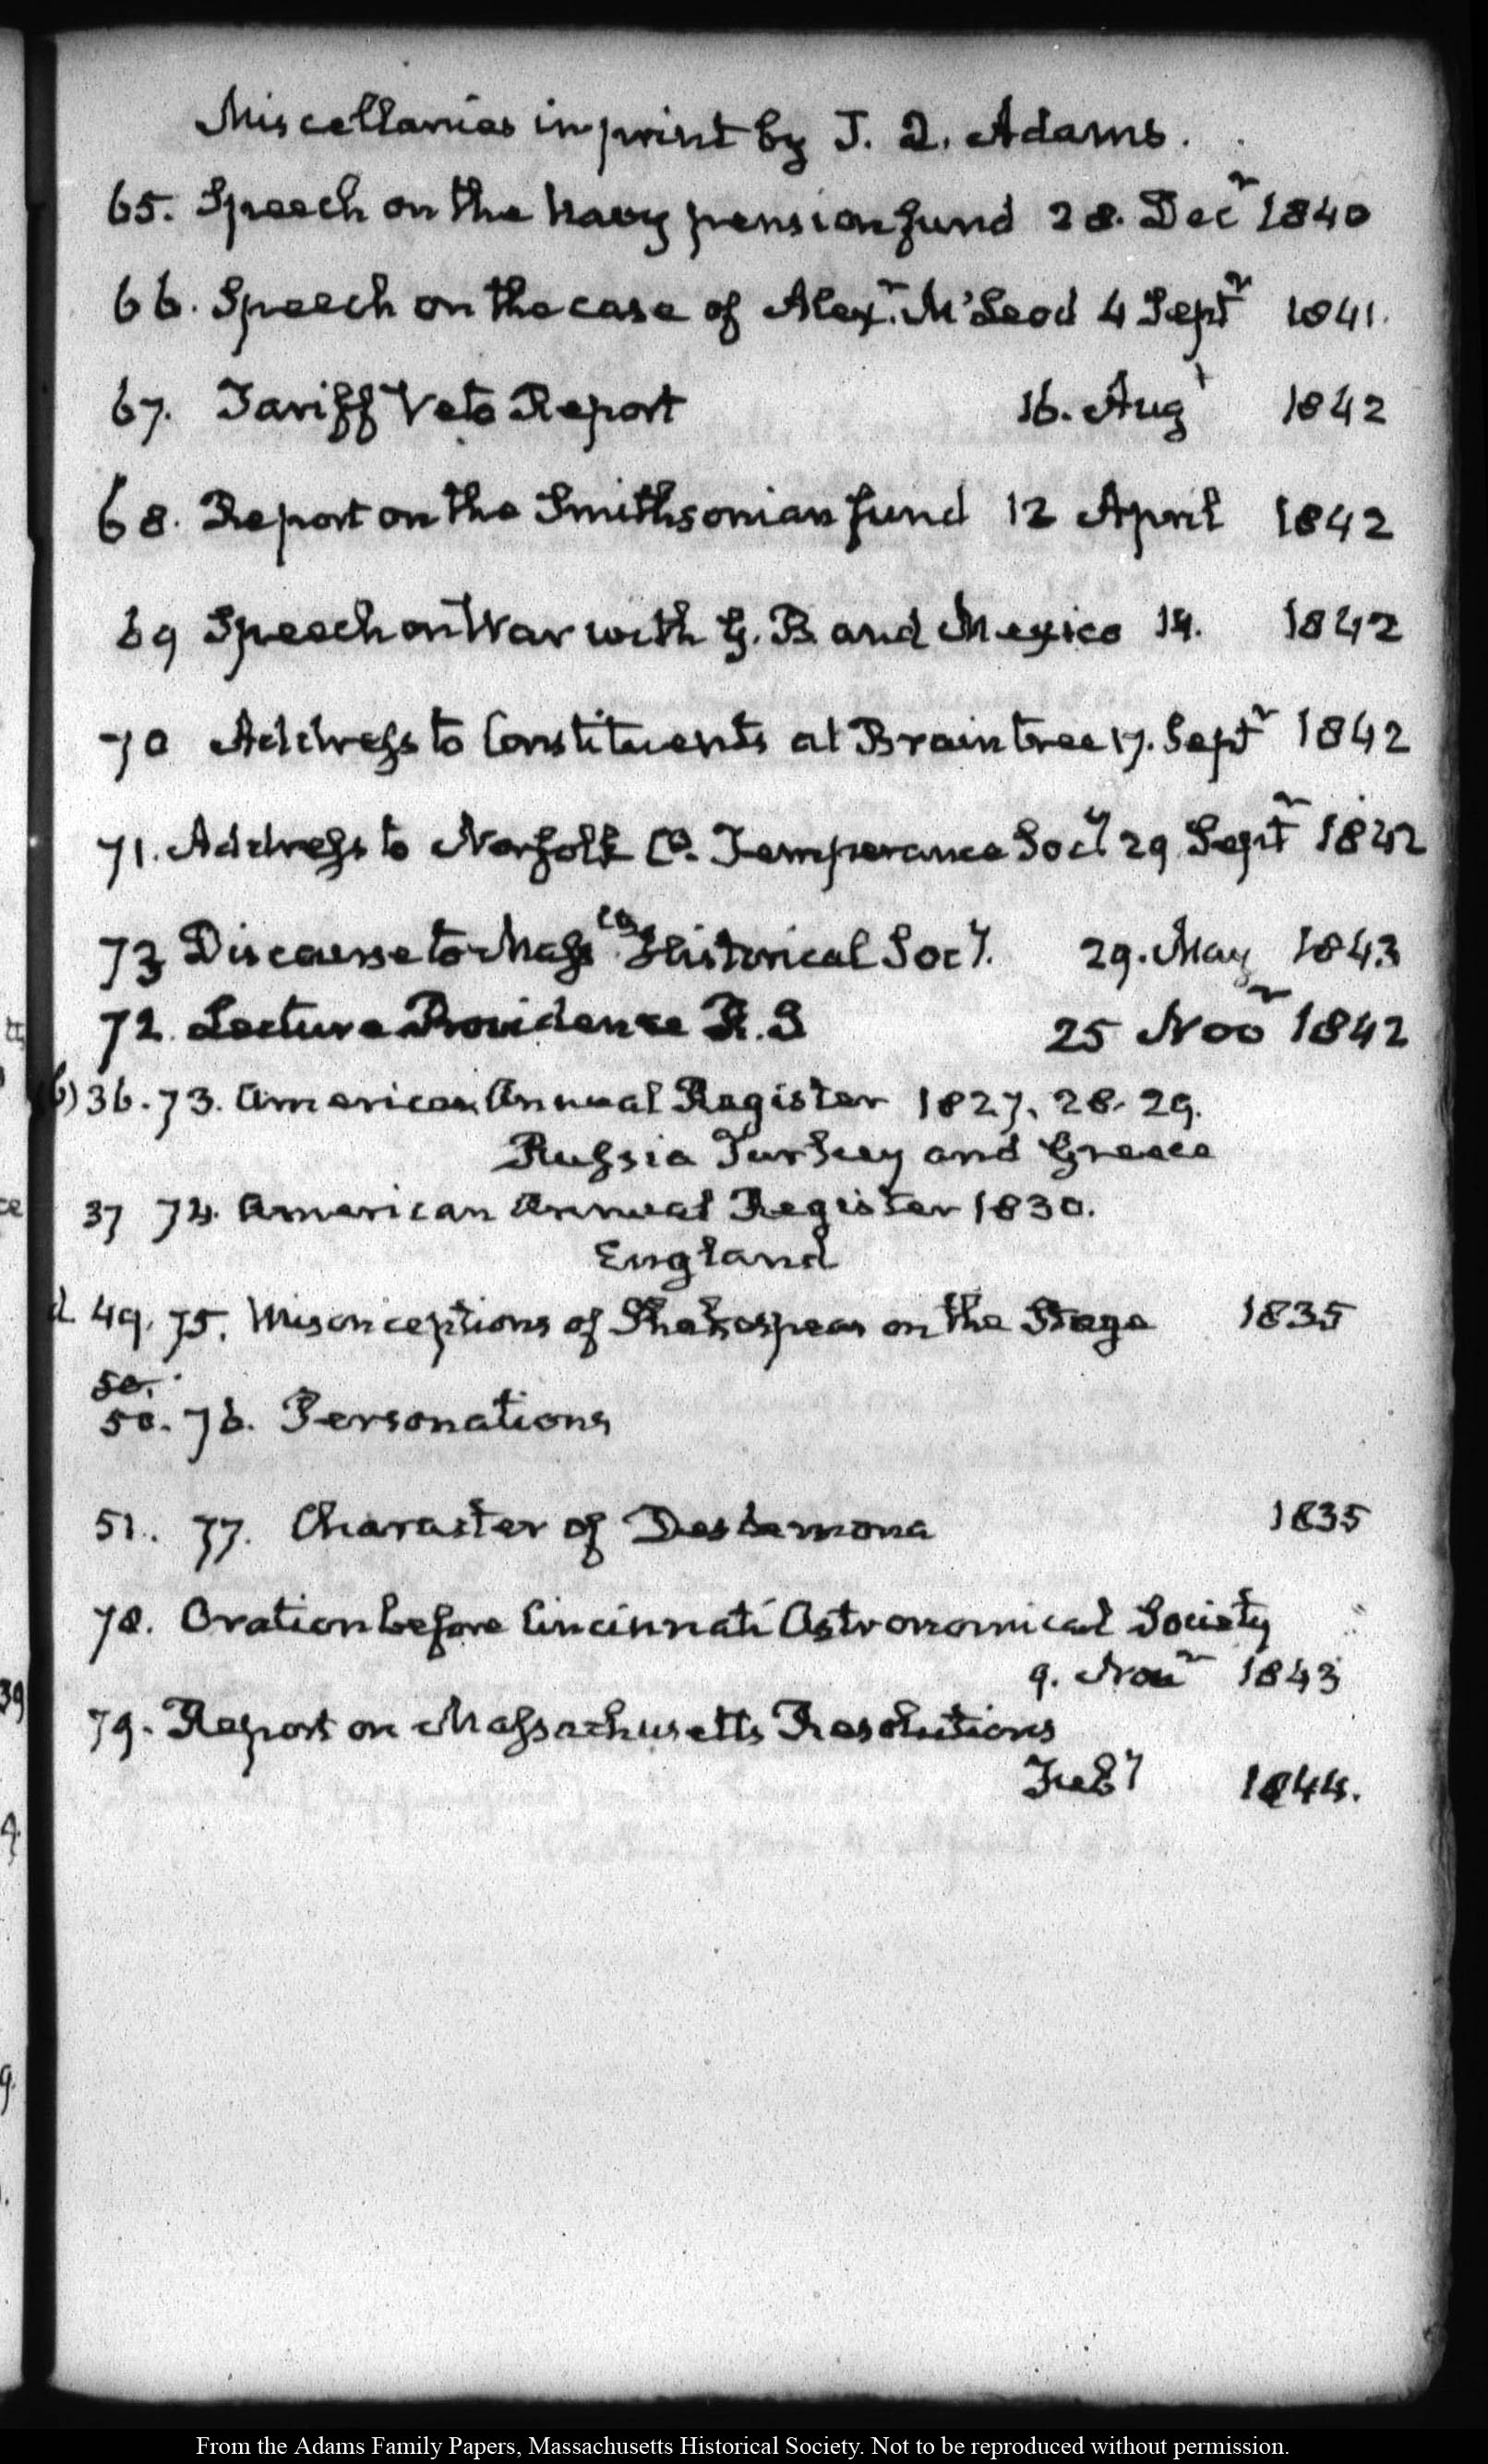 Miscellanies in print by J. Q. Adams.
65. Speech on the Navy pension fund 28. Decr 1840
66. Speech on the case of Alexr. M'Leod 4 Septr 1841.
67. Tariff Veto Report 16. Augt 1842
68. Report on the Smithsonian fund 12 April 1842
69 Speech on War with G. B and Mexico 14. 1842
70 Address to Constituents at Braintree 17. Septr 1842
71. Address to Norfolk Co. Temperance Socy 29 Septr 1842
73 Discourse to Masstts Historical Socy. 29. May 1843
72. Lecture Providence R. I 25 Novr 1842
36. 73. American Annual Register 1827, 28. 29.
Russia Turkey and Greece
37 74. American Annual Register 1830.
England
49. 75. Misconceptions of Shakespear on the Stage 1835
50.
50. 76. Personations
51. 77. Character of Desdemona 1835
78. Oration before Cincinnati Astronomical Society
9. Novr 1843
79. Report on Massachusetts Resolutions
Feby 1844.
From the Adams Family Papers, Massachusetts Historical Society. Not to be reproduced without permission.